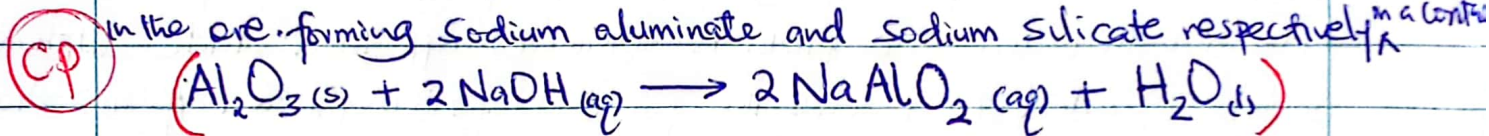 in the ore. forming sodium aluminate and sodium silicate respectively in a
CP
(Al₂O₃ (s) + 2 NaOH (aq) → 2 NaAlO₂ (aq) + H₂O (l))